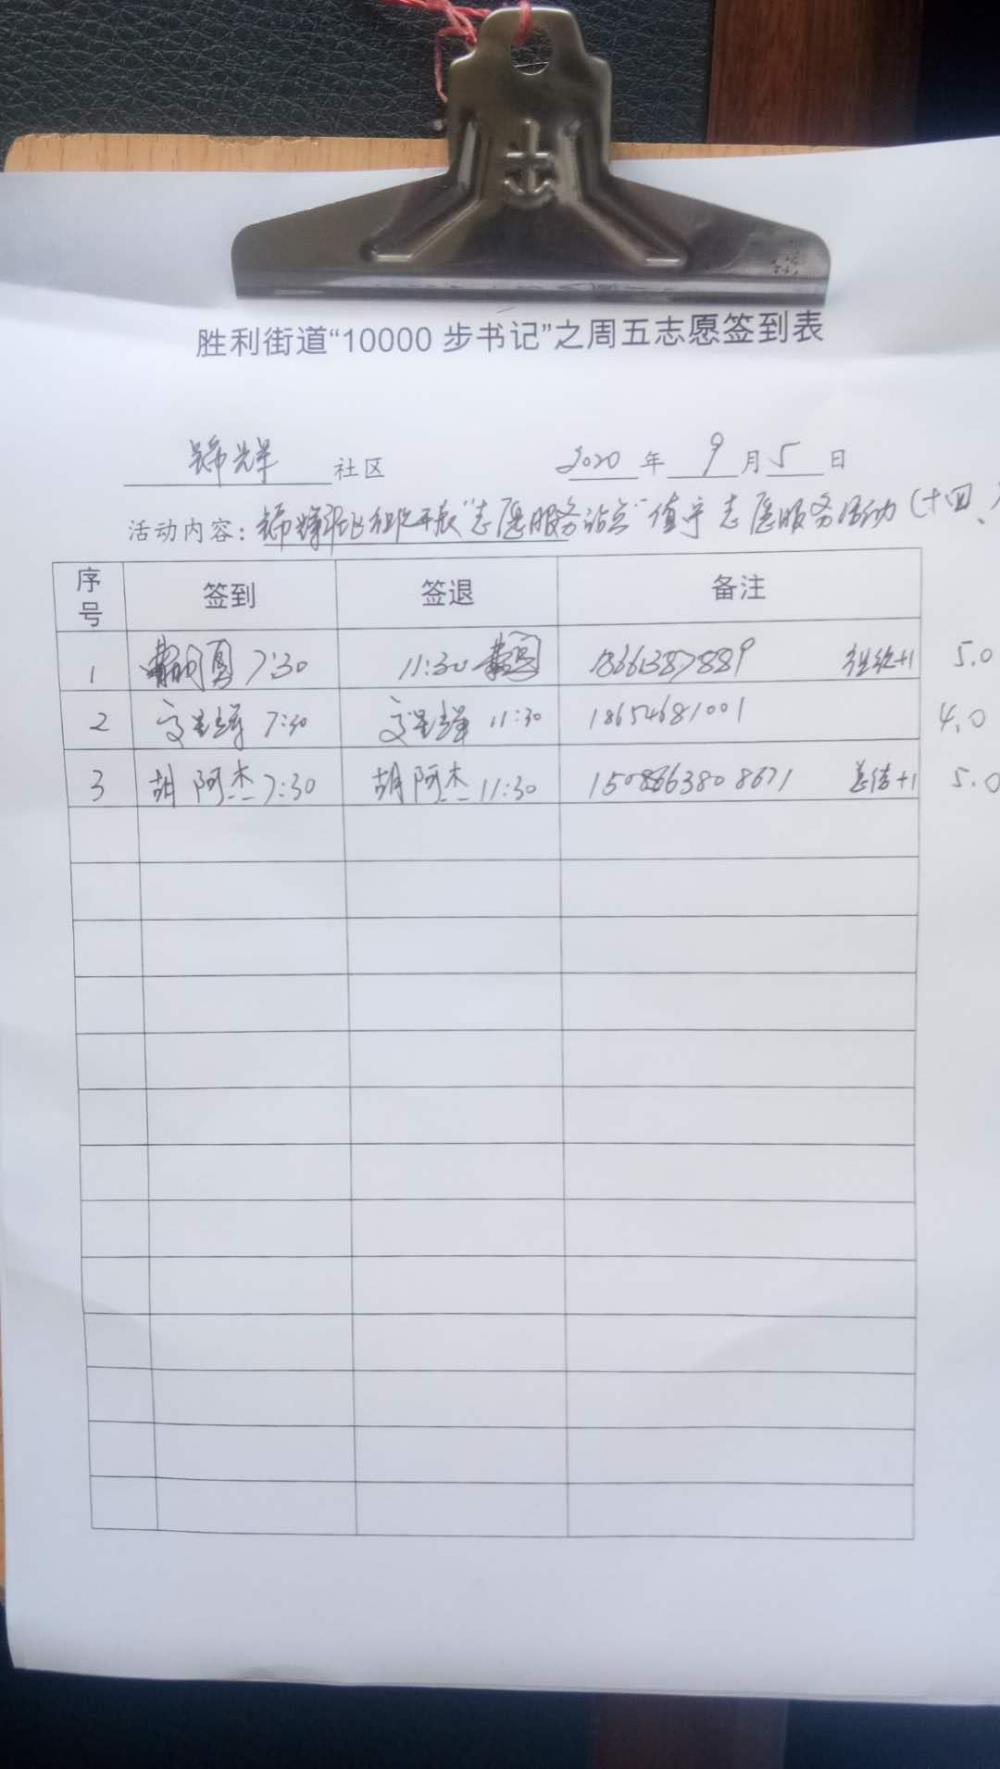 胜利街道“10000 步书记”之周五志愿签到表
锦辉 社区 2020 年 9 月 5 日
活动内容：锦辉社区开展“志愿服务站点”值守志愿服务活动（十四、
序号 签到 签退 备注
1 7:30 11:30 18661387889 组织+1 5.0
2 7:30 11:30 18654681001 4.0
3 胡阿杰 7:30 胡阿杰 11:30 总结+1 5.0